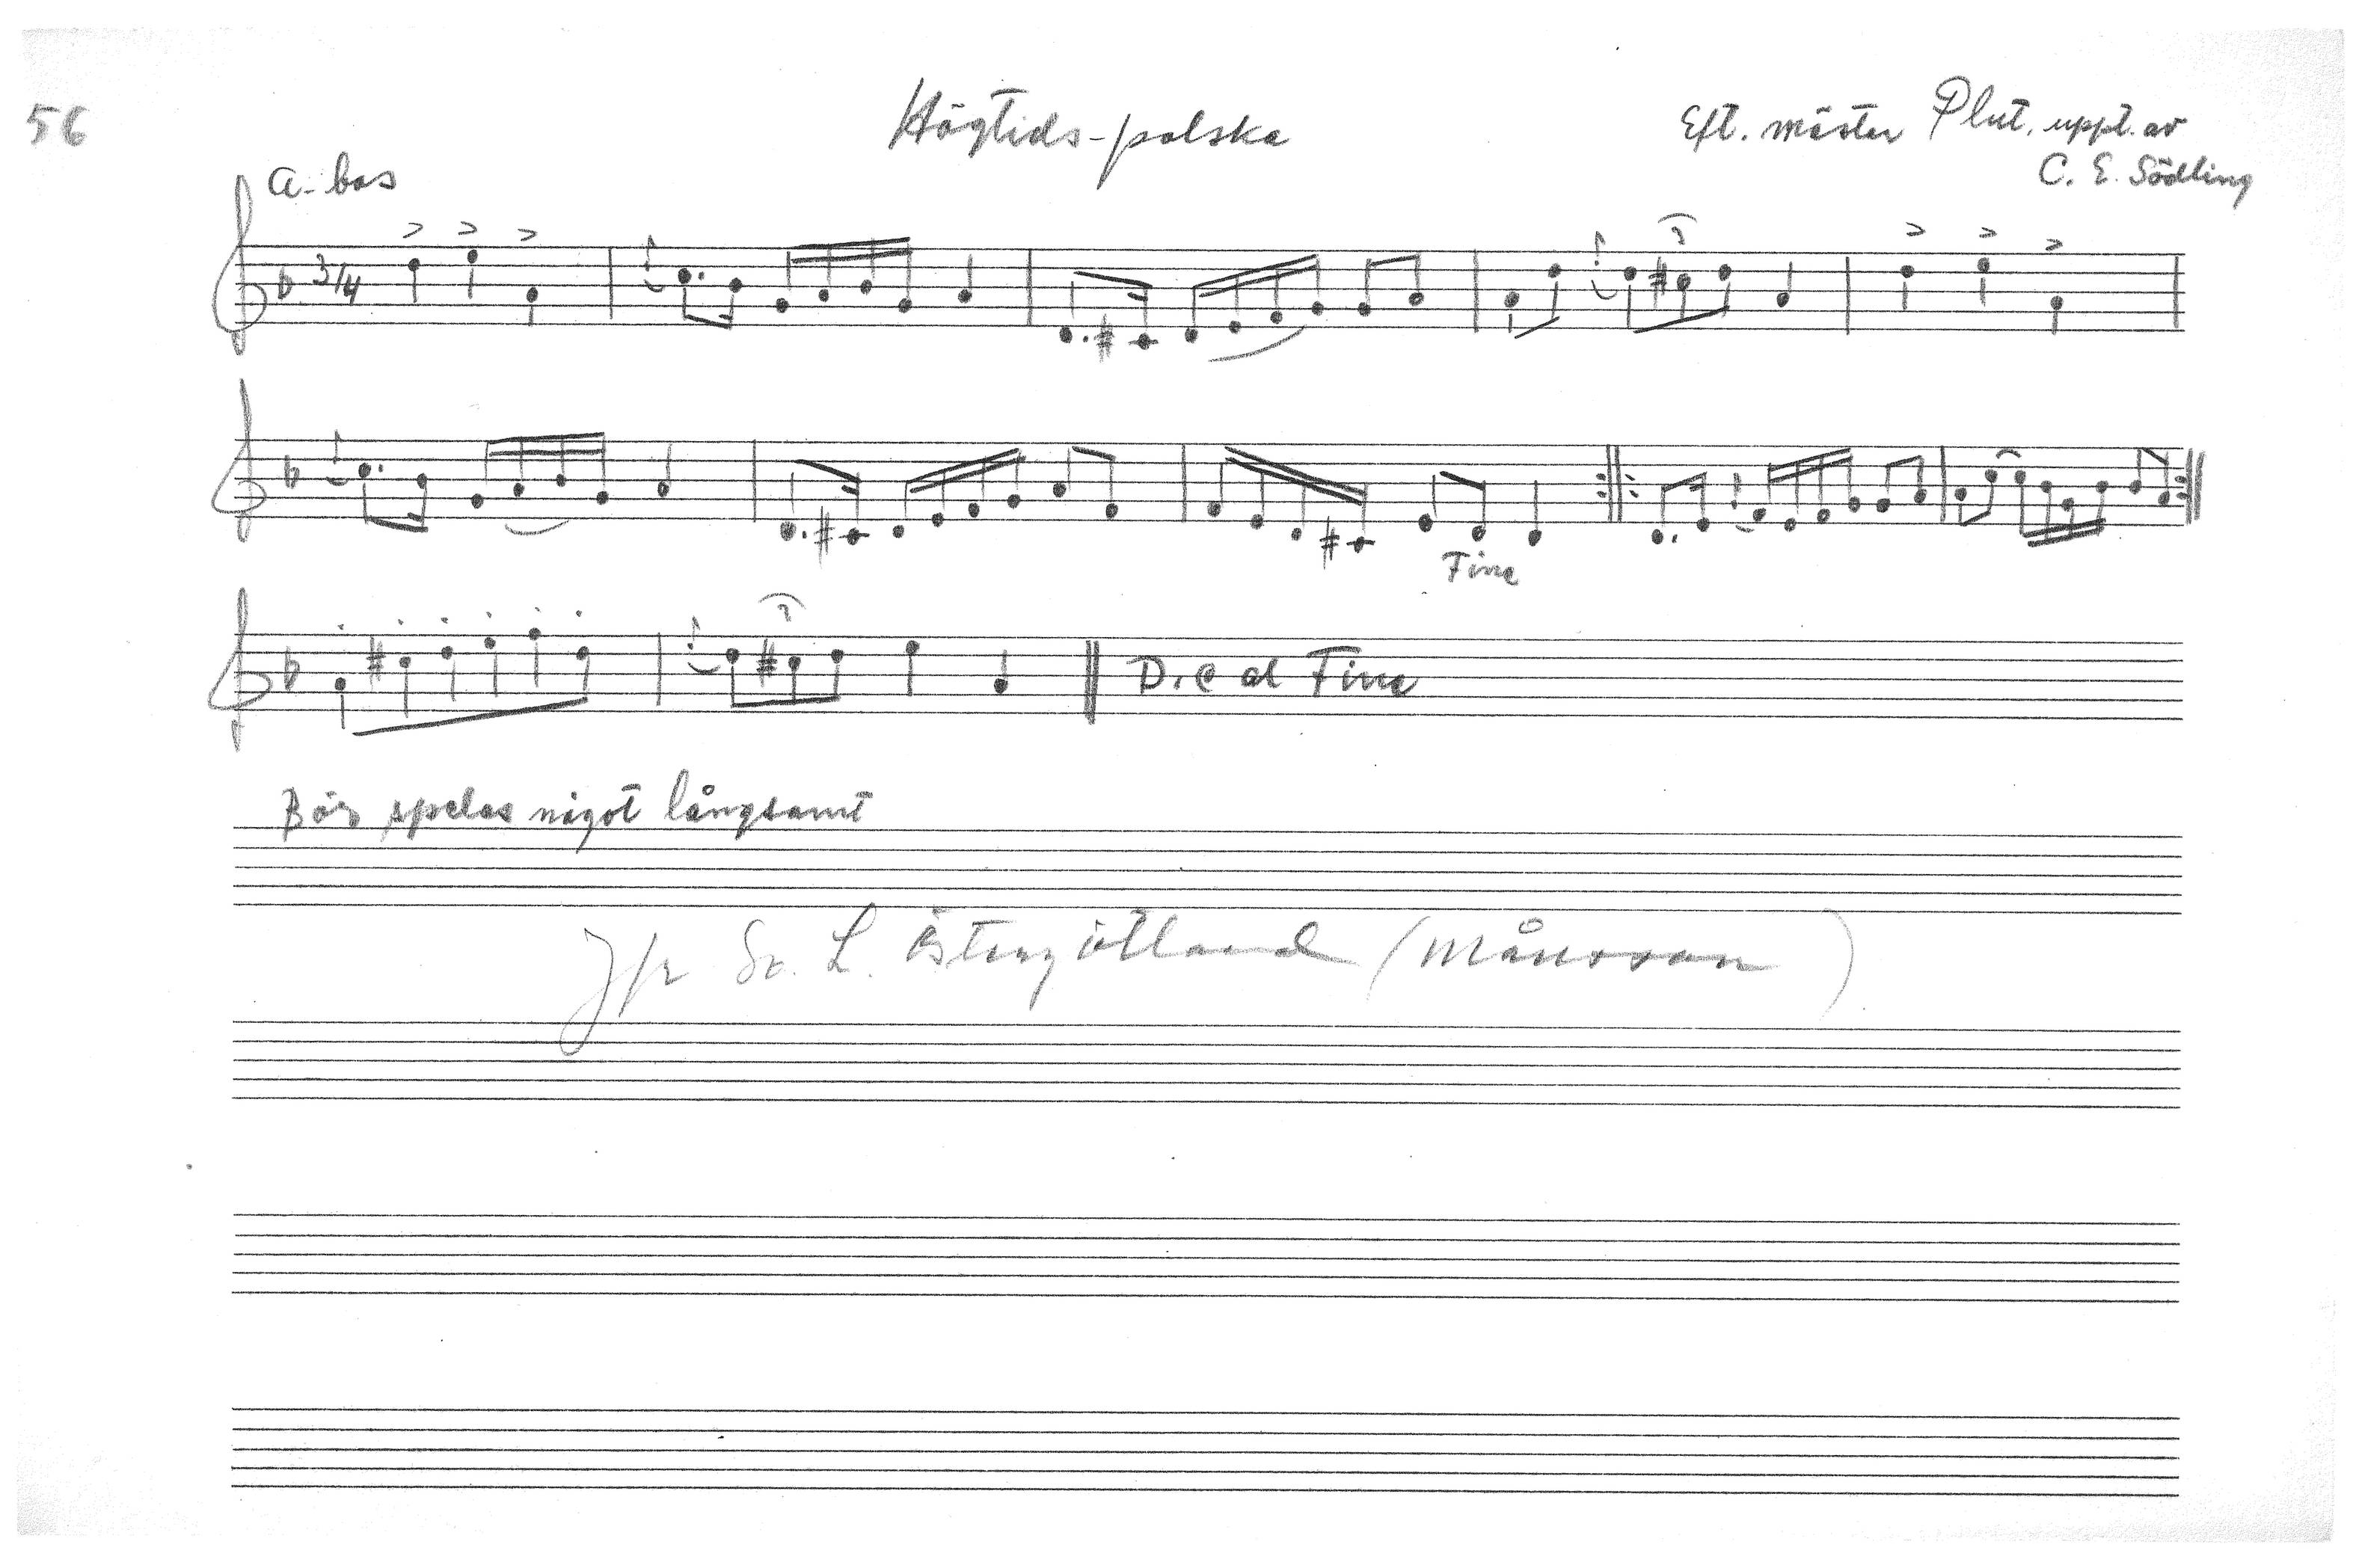 56
Högtids-polska
Eft. mäster Plut. uppt. av
C. E. Södling
a-bas
3/4
3
Fine
3
D.C al Fine
Bör spelas något långsamt
Jfr Sv. L. Östergötland (Månsson)